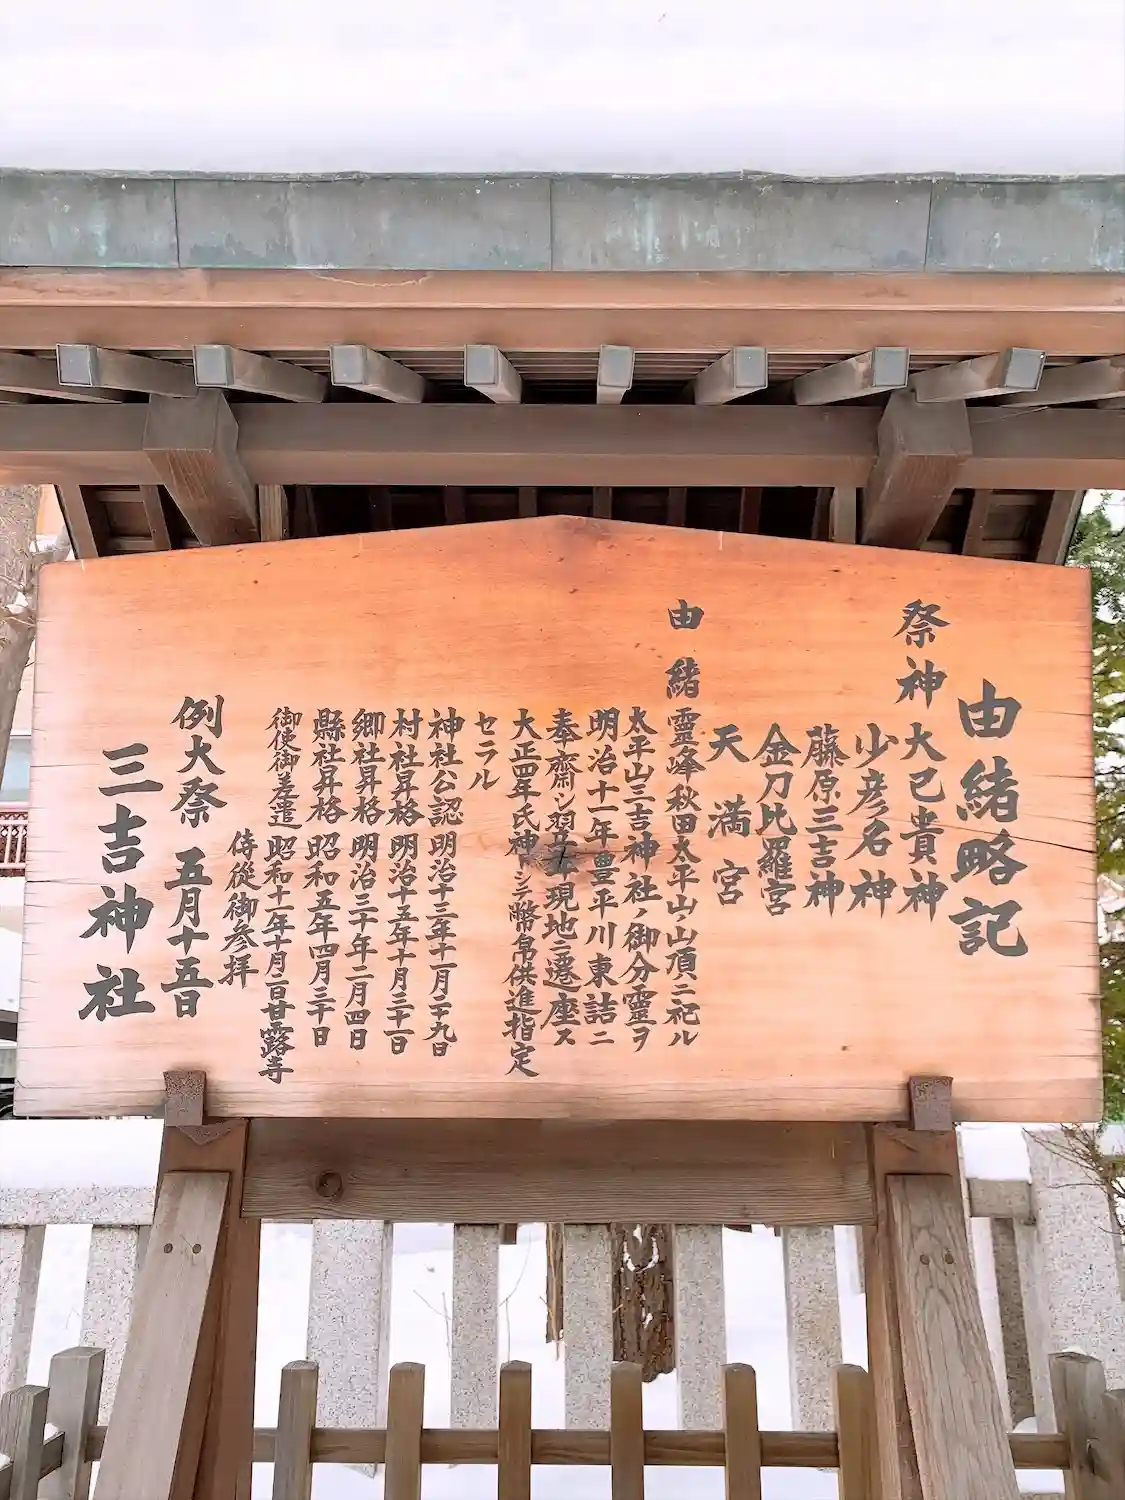 由緒略記
祭神 大己貴神
少彦名神
藤原三吉神
金刀比羅宮
天満宮
由緒 靈峰秋田太平山ノ山頂ニ祀ル
太平山三吉神社ノ御分靈ヲ
明治十一年豊平川東詰ニ
奉齋シ翌十二年現地ニ遷座ス
大正四年氏神トシテ幣帛供進指定
セラル
神社公認 明治十三年十一月二十九日
村社昇格 明治十五年十月三十一日
郷社昇格 明治三十年二月四日
縣社昇格 昭和五年四月三十日
御使御差遣 昭和十一年十月二日甘露寺
侍從御参拝
例大祭 五月十五日
三吉神社